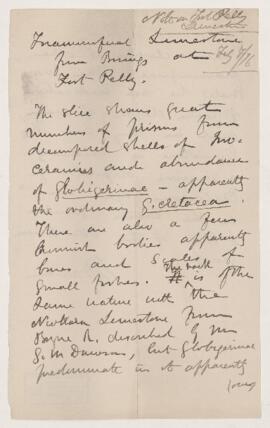 Note on Fort Pelly
Limestone
Foraminiferal Limestone
from Borings at
Fort Pelly.
The slice shows great
numbers of prisms from
decomposed shells of Ino-
ceramus and abundance
of Globigerinae – apparently
the ordinary G. cretacea.
There are also a few
brownish bodies apparently
bones and scales of
small fishes. The rock is of the
same nature with the
Niobrara Limestone from
Boyne R. described by Mr
G. M. Dawson, but Globigerinae
predominate in it apparently